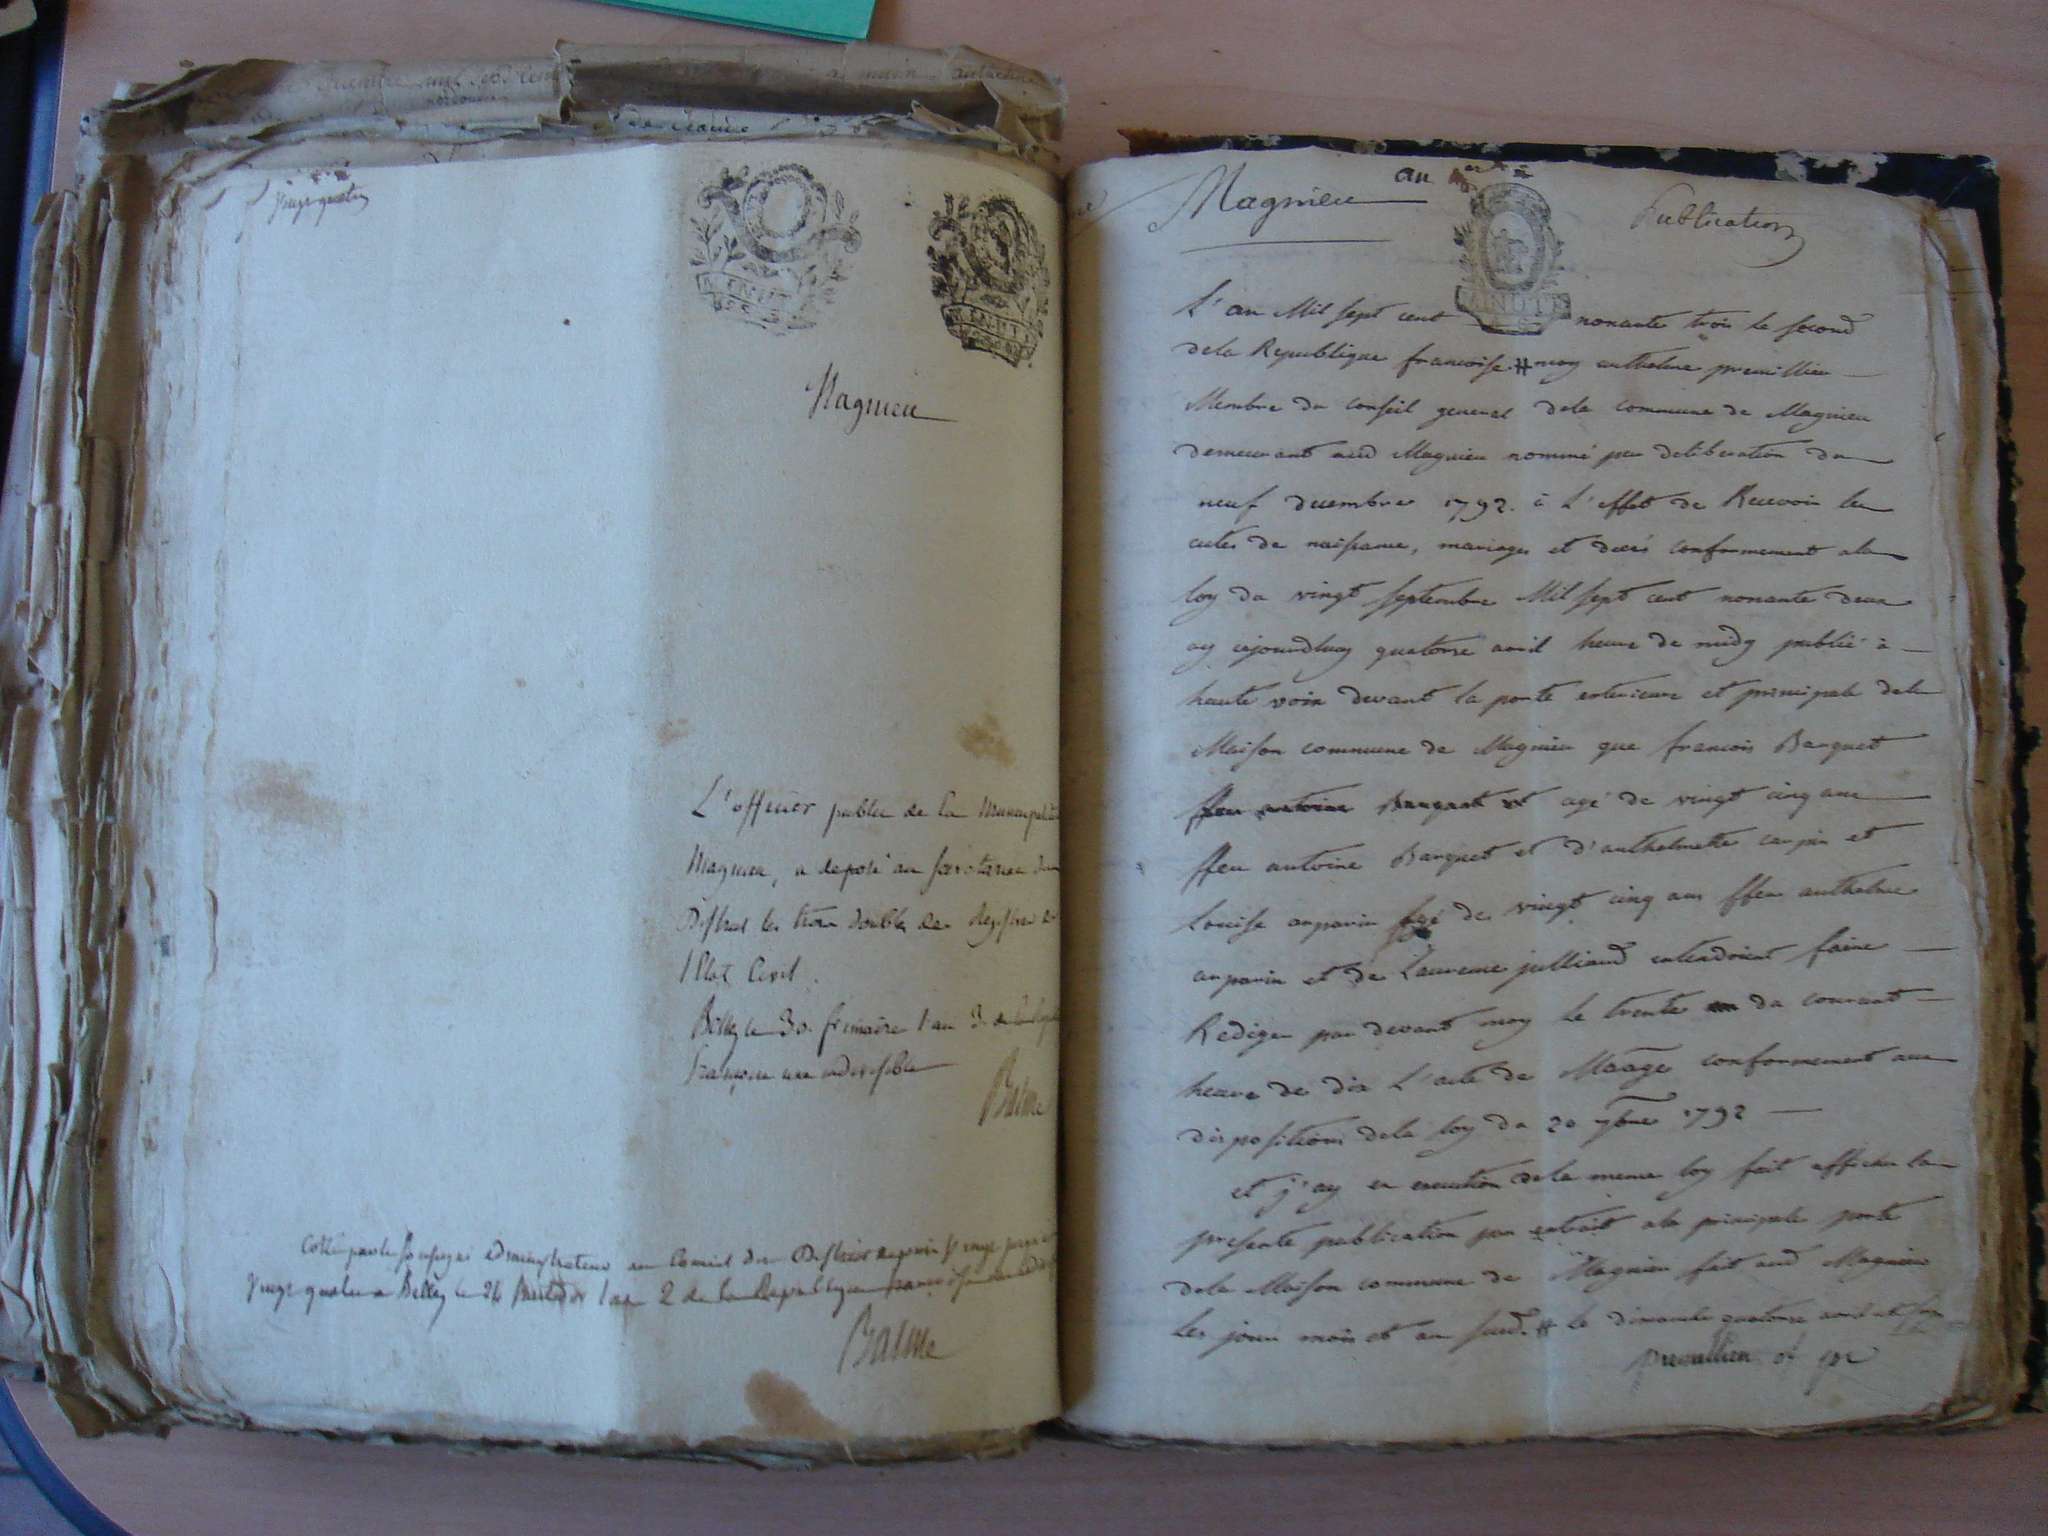 vingt quatre
MINUTE
MINUTE
Magnieu
L'officier public de la municipalité
Magnieu, a deposé au secretariat du
District les trois doubles des Registres de
l'Etat Civil.
Belley le 30. frimaire l'an 3. de la
française une indivisible
Balme
Cotté par le soussigné administrateur au Conseil du District
vingt quatre a Belley le 24 l'an 2 de la Republique
Balme
Magnieu
an
Publication
MINUTE
L'an Mil sept cent nonante trois le second
de la Republique francoise # moy anthelme premillieu
Membre du conseil general dela commune de Magnieu
demeurant aud Magnieu nommé par deliberation du
neuf decembre 1792. à L'effet de Recevoir les
actes de naissance, mariages et decés conformement ala
loy du vingt septembre Mil sept cent nonante deux
ay cejourdhuy quatorse avril heure de midy publié à
haute voix devant la porte exterieure et principale dela
Maison commune de Magnieu que francois Barquet
ffeu antoine Barquet et agé de vingt cinq ans
ffeu antoine Barquet et d'anthelmette carpin et
Louise anparin agé de vingt cinq ans ffeu anthelme
anparin et de Laurence julliand entendoient faire
Rediger par devant moy le trente du courant
heure de dix L'acte de Maage conformement aux
dispositions dela loy du 20 7bre 1792
et j'ay en execution dela meme loy fait afficher la
presente publication par extrait ala principale porte
dela Maison commune de Magnieu fait aud Magnieu
Les jour mois et an susd. # le dimanche quatorse avril
premillieu of pu